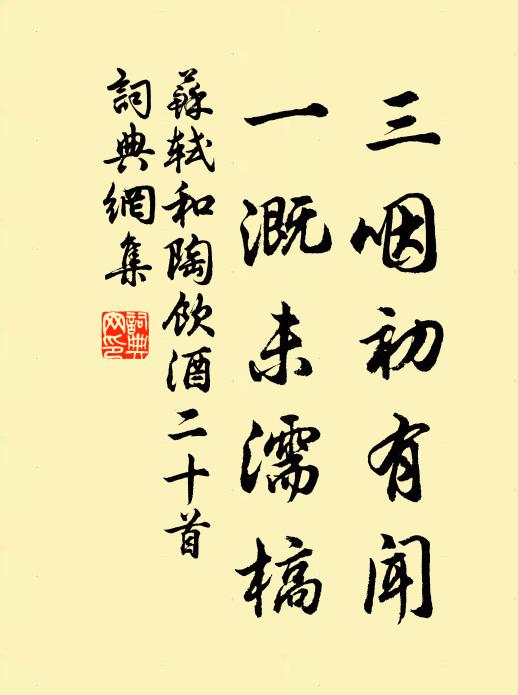 三咽初有闻
一溉未濡槁
蘇軾和陶飲酒二十首
詞典網集
詞典网印